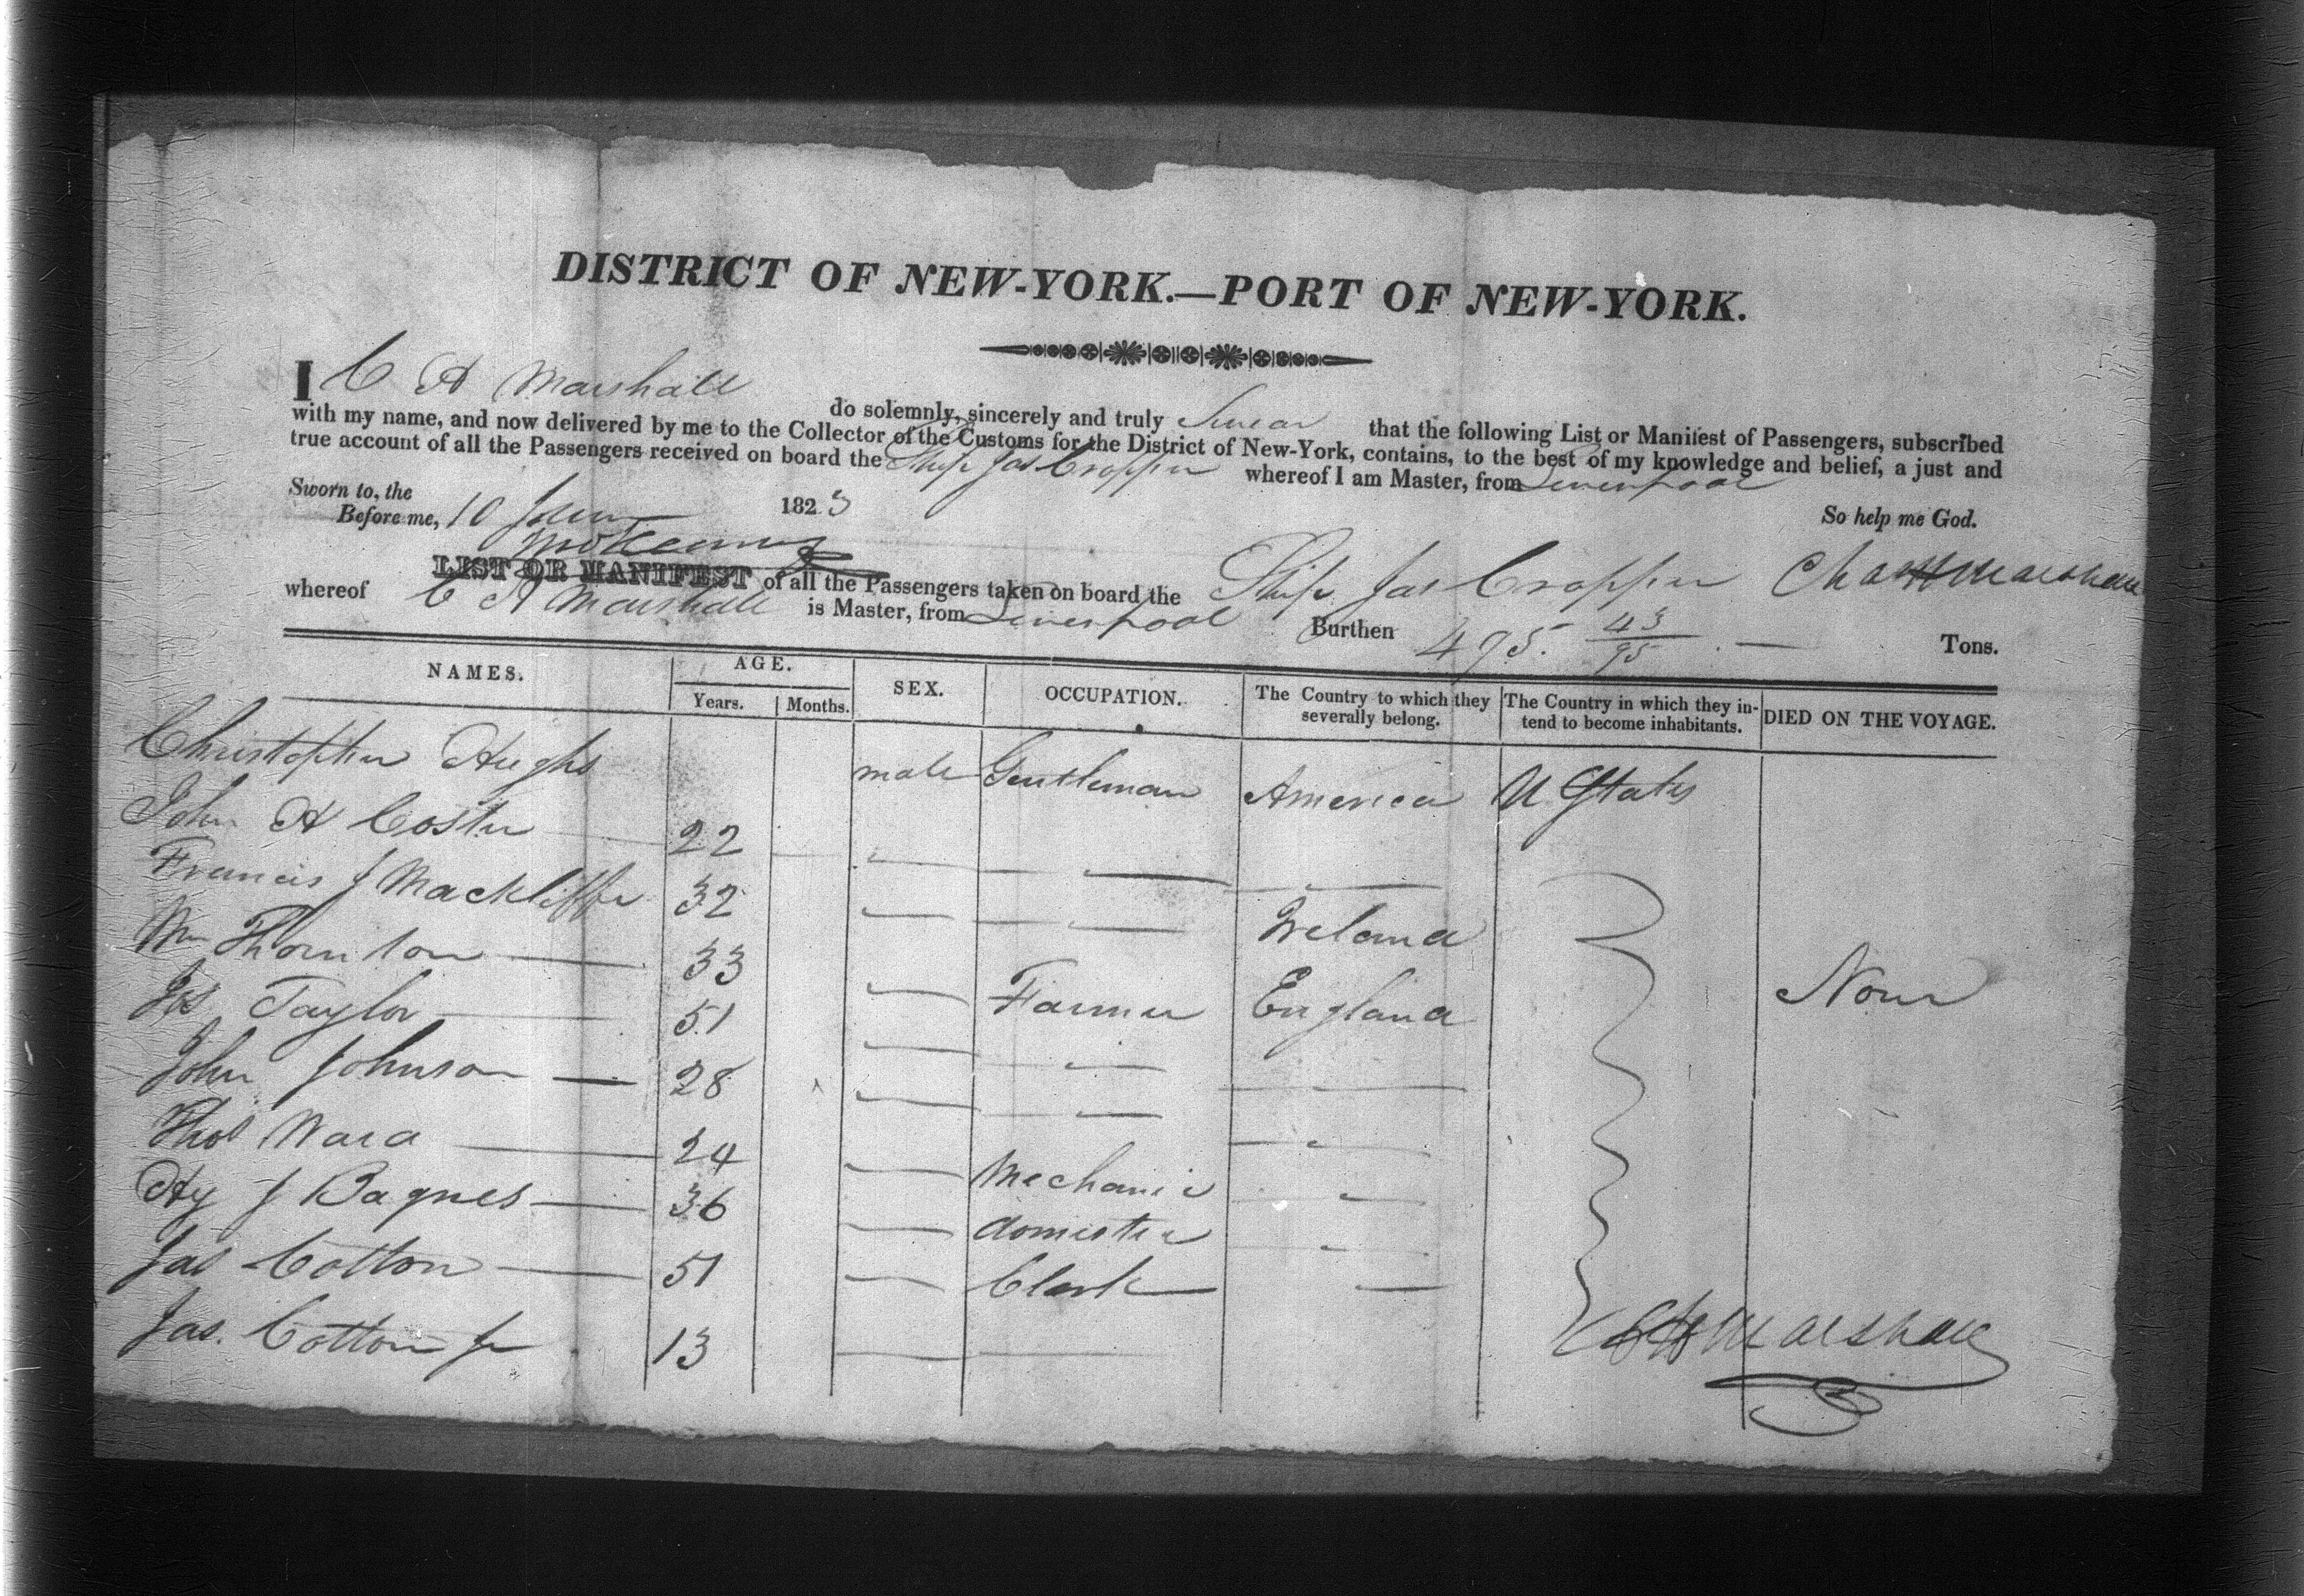 DISTRICT OF NEW-YORK.—PORT OF NEW-YORK.
I C H Marshall do solemnly, sincerely and truly Swear that the following List or Manifest of Passengers, subscribed
with my name, and now delivered by me to the Collector of the Customs for the District of New-York, contains, to the best of my knowledge and belief, a just and
true account of all the Passengers received on board the Ship Jas Cropper whereof I am Master, from Liverpool
Sworn to, the 10 1823 So help me God.
Before me,
Chas H Marshall
LIST OR MANIFEST of all the Passengers taken on board the Ship Jas Cropper
whereof C H Marshall is Master, from Liverpool Burthen 495 43/95 Tons.
NAMES. AGE. Years. Months. SEX. OCCUPATION. The Country to which they severally belong. The Country in which they intend to become inhabitants. DIED ON THE VOYAGE.
Christopher Hughs male Gentleman America U States
John H Coster 22
Francis J Mackliffe 32 Ireland
Wm Thornton 33 Farmer England None
Jos Taylor 51
John Johnson 28
Thos Ward 24 Mechanic
Hy J Bagnes 36 domestic
Jas Cotton 51 Clark
Jas. Cotton Jr 13
C H Marshall